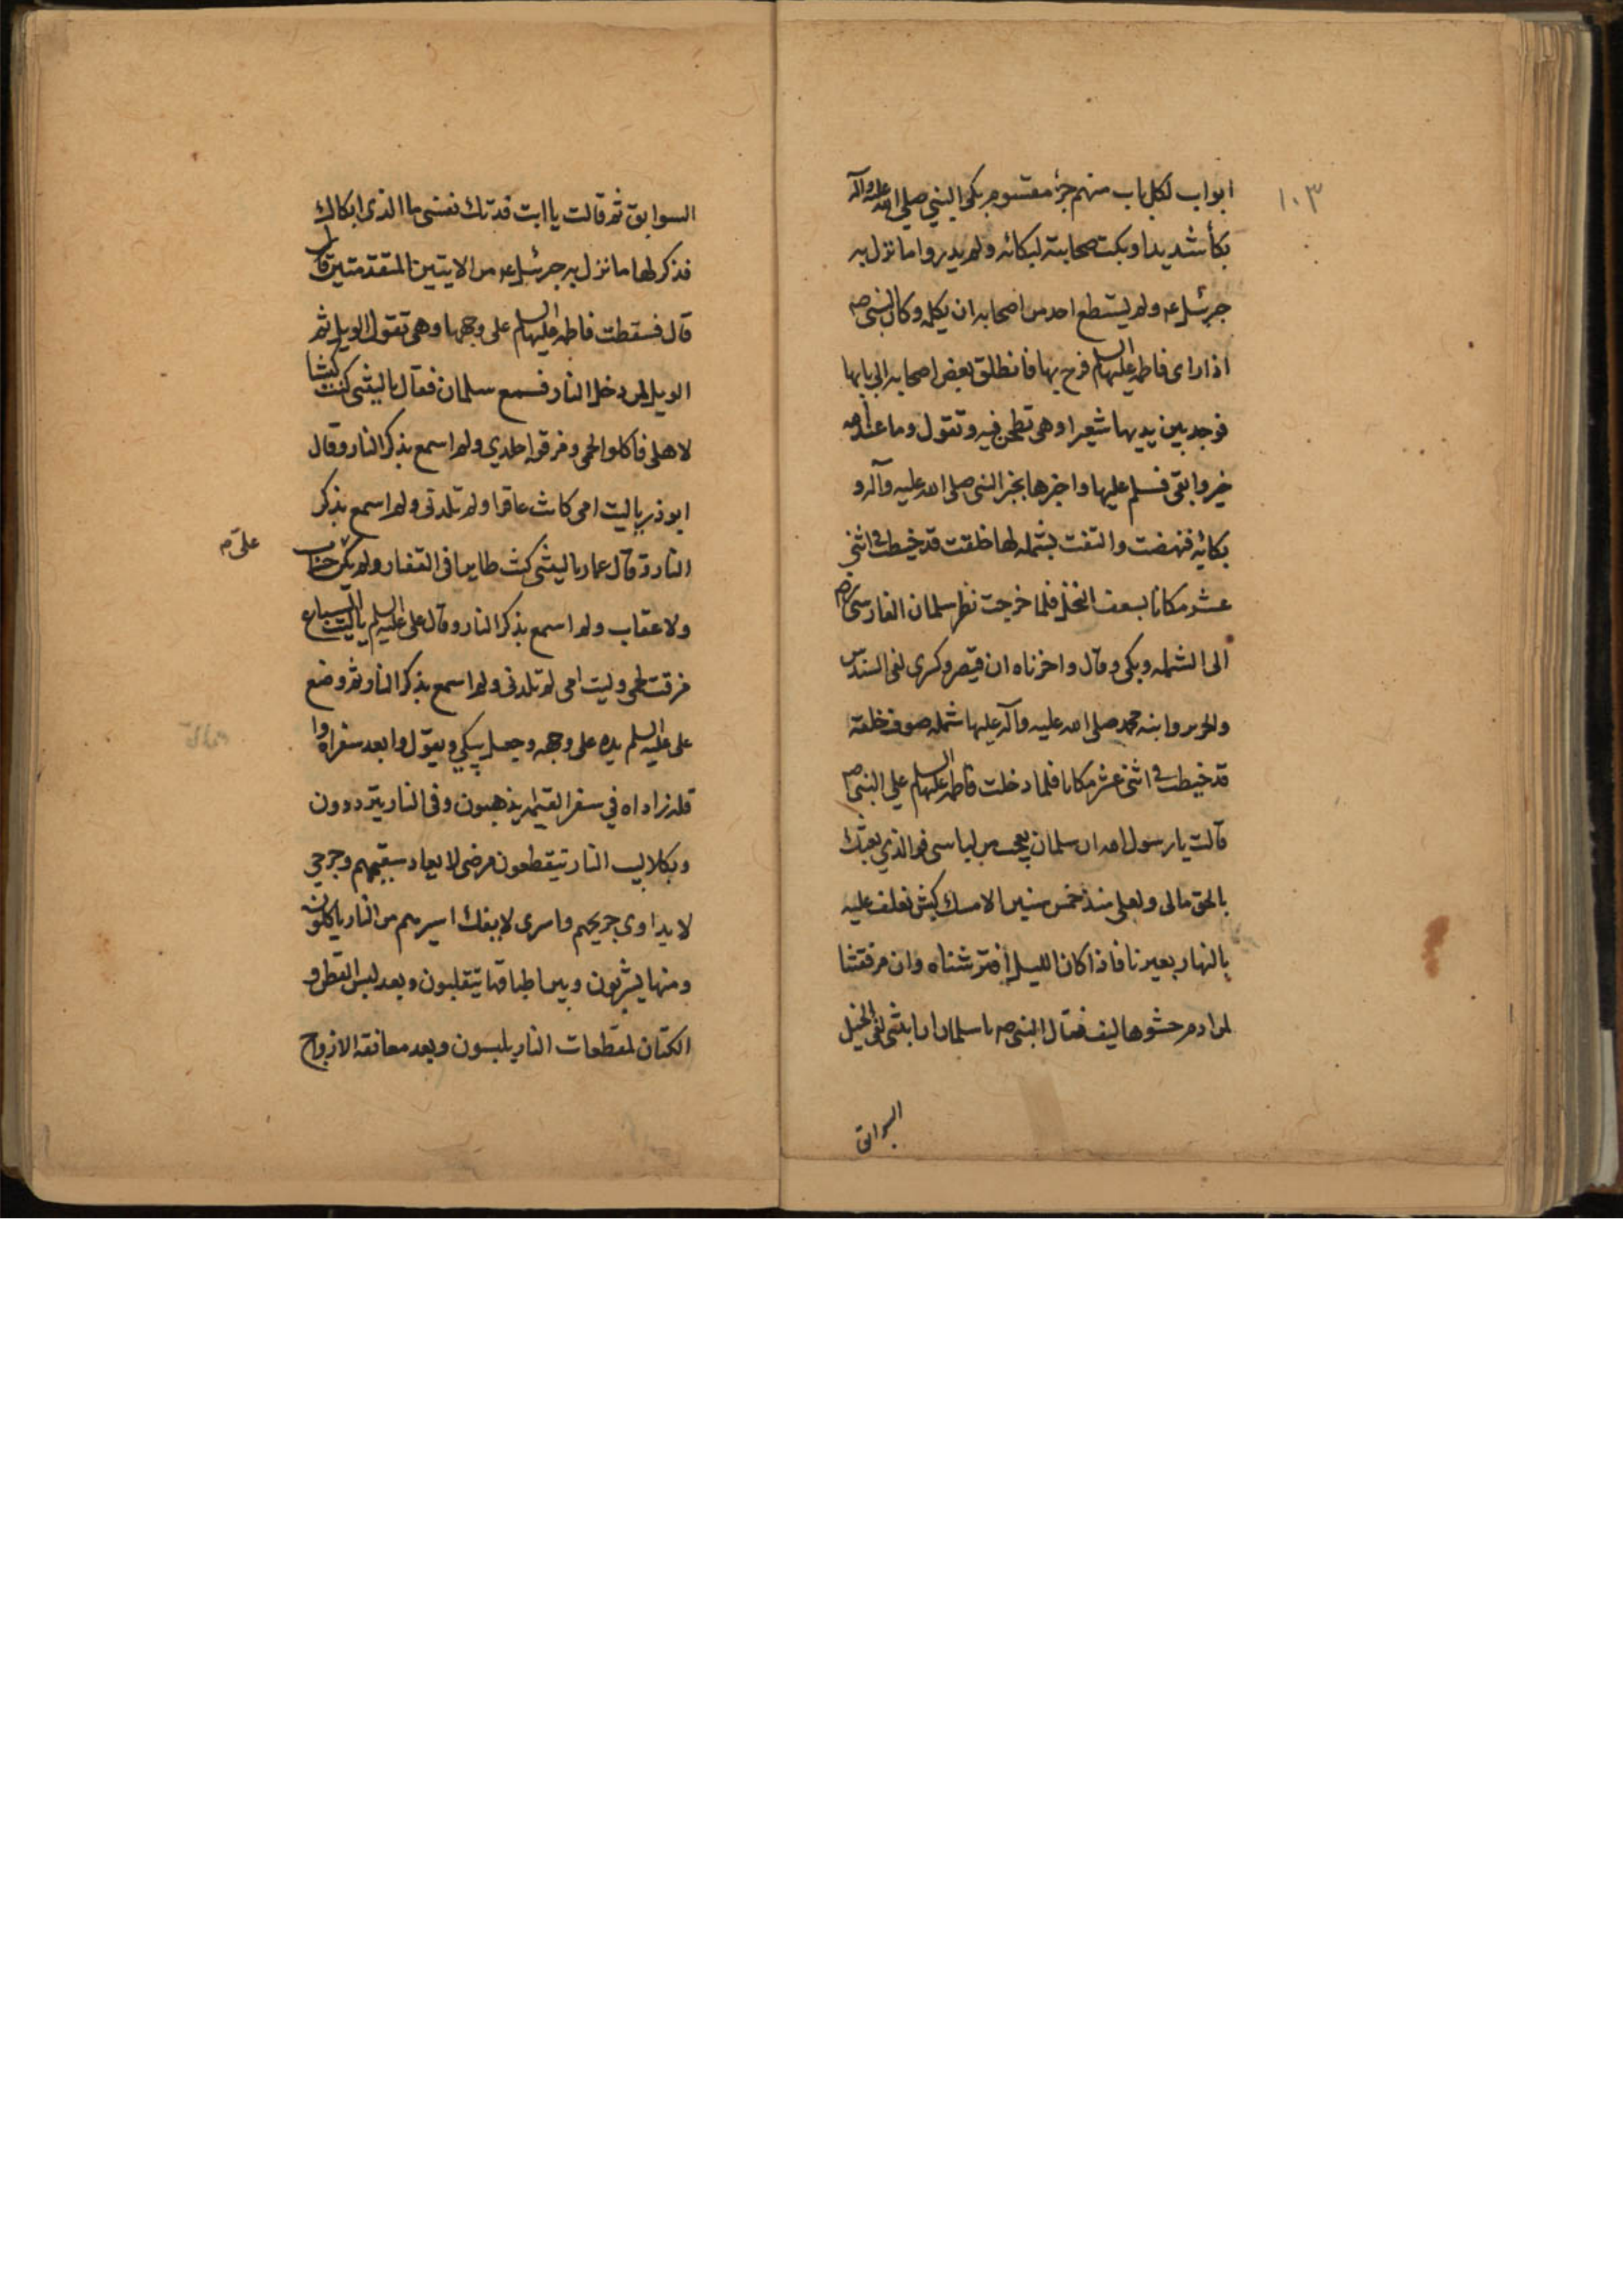 ١٠٣
ابواب لكل باب منهم جزء مقسوم بكى النبي صلى الله عليه وآله
بكأ شديدا وبكت صحابته لبكائه ولم يدروا ما نزل به
جبرئيل عم ولم يستطع احد من اصحابه ان يكلمه وكان النبى صم
اذا راى فاطمه عليها السلم فرح بها فانطلق بعض اصحابه الى بابها
فوجد بين يديها شعيرا وهى تطحن فيه وتقول وما عند الله
خير وابقى فسلم عليها واخبرها بخبر النبى صلى الله عليه وآله و
بكائه فنهضت والتفت بشمله لها خلقت قد خيطت فى اثنى
عشر مكانا بسعف النخل فلما خرجت نظر سلمان الفارسى رض
الى الشمله وبكى وقال واحزناه ان قيصر وكسرى لفى السندس
والحرير وابنه محمد صلى الله عليه وآله عليها شمله صوف خلقة
قد خيطت فى اثنى عشر مكانا فلما دخلت فاطمه عليها السلم على النبى صم
قالت يا رسول الله ان سلمان يعجب من لباسى فوالذي بعثك
بالحق مالى ولعلى منذ خمس سنين الا مسك كبش نعلف عليه
بالنهار بعيرنا فاذا كان الليل افترشناه وان مرفقتنا
لمن ادم حشوها ليف فقال النبى صم يا سلمان ان ابنتى لفى الخيل
السوابق
السوابق ثم قالت يا ابت فدتك نفسى ما الذى ابكاك
فذكر لها ما نزل به جبرئيل عم من الايتين المتقدمتين قال
قال فسقطت فاطمه عليها السلم على وجهها وهى تقول الويل ثم
الويل لمن دخل النار فسمع سلمان فقال يا ليتنى كنت كبشا
لاهلى فاكلوا لحمى ومزقوا جلدي ولم اسمع بذكر النار وقال
ابوذر يا ليت امى كانت عاقرا ولم تلدنى ولم اسمع بذكر
النار وقال عمار يا ليتنى كنت طايرا فى القفار ولم يكن على حساب
على م
ولا عقاب ولم اسمع بذكر النار وقال على عليه السلم يا ليت السباع
مزقت لحمى وليت امى لم تلدنى ولم اسمع بذكر النار ثم وضع
على عليه السلم يده على وجهه وجعل يبكي ويقول وا بعد سفراه وا
قله زاداه في سفر القيمه يذهبون وفى النار يترددون
وبكلاليب النار تيقطعون مرضى لا يعاد سقيمهم وجرحي
لا يداوى جريحهم واسرى لا يفك اسيرهم من النار ياكلون
ومنها يشربون وبين اطباقها يتقلبون وبعد لبس القطن و
الكتان لمقطعات النار يلبسون وبعد معانقه الازواج